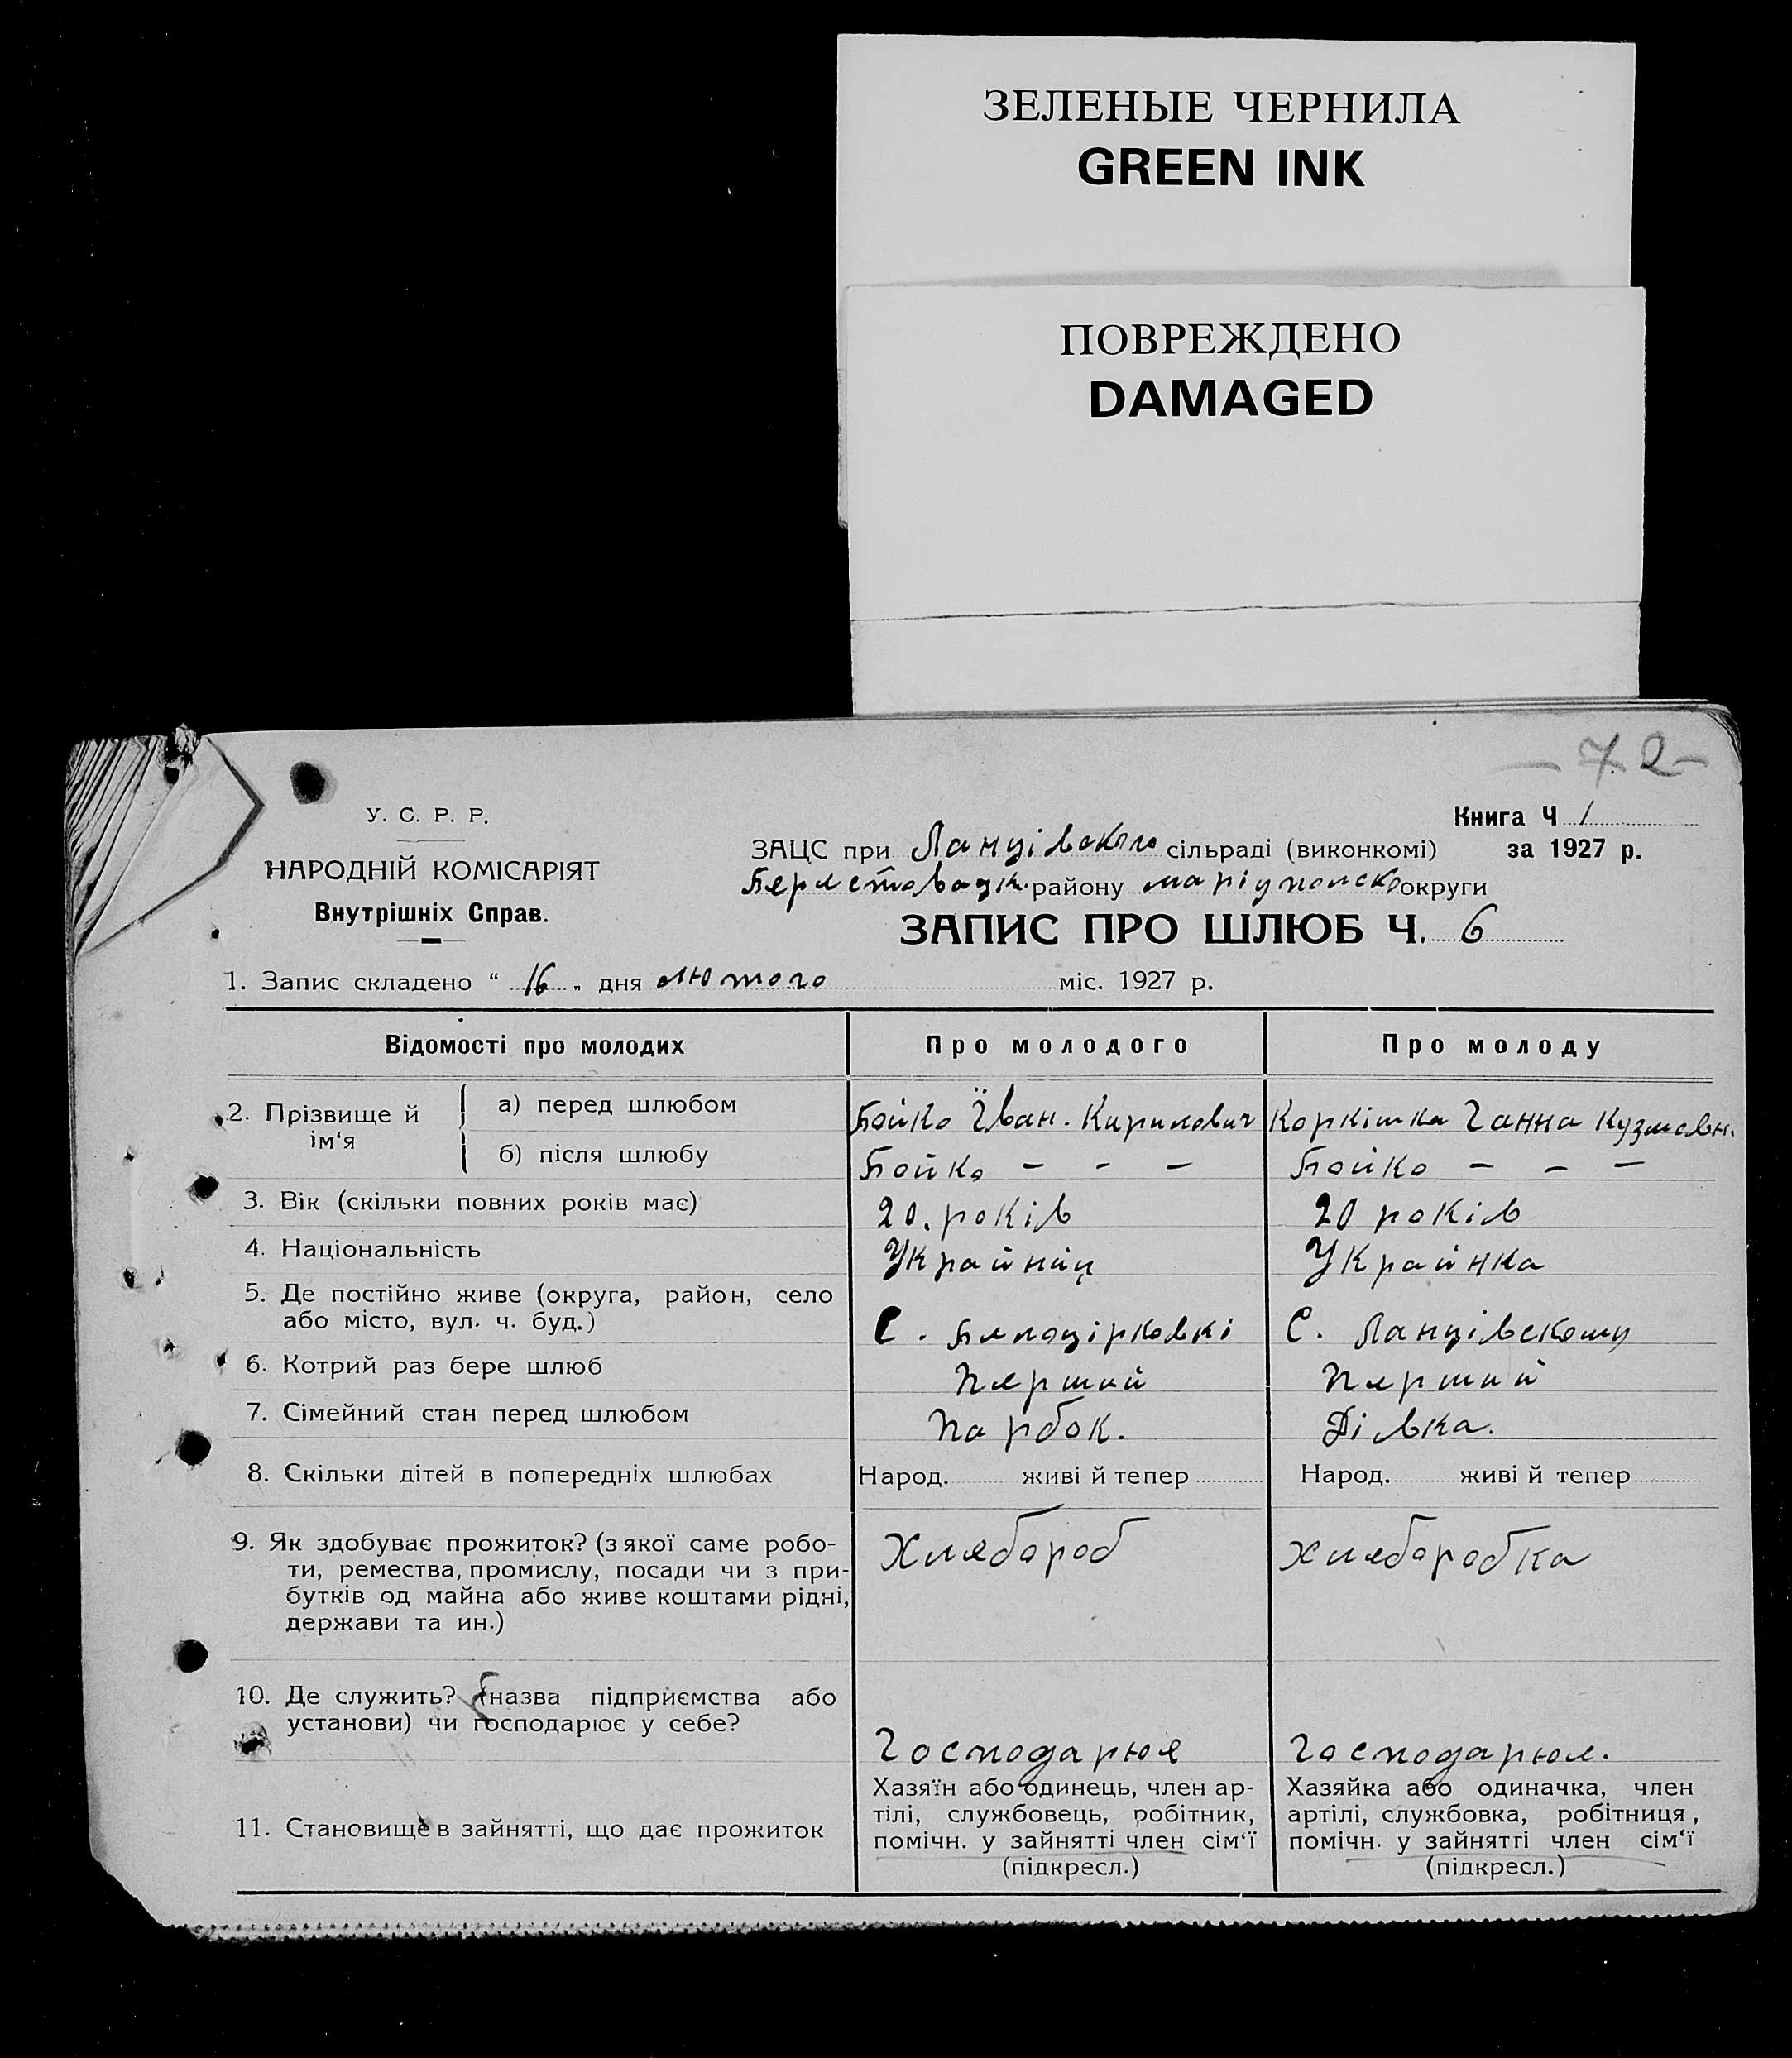 ЗЕЛЕНЫЕ ЧЕРНИЛА
GREEN INK
ПОВРЕЖДЕНО
DAMAGED
– 72 –
У. С. Р. Р.
НАРОДНІЙ КОМІСАРІЯТ
Внутрішніх Справ.
Книга Ч 1
ЗАЦС при Ланцівского сільраді (виконкомі) за 1927 р.
району округи
ЗАПИС ПРО ШЛЮБ Ч. 6
1. Запис складено “ 16 „ дня лютого міс. 1927 р.
Відомості про молодих Про молодого Про молоду
2. Прізвище й ім‘я
а) перед шлюбом Бойко Їван. Кирилович Коркішка Ганна Кузмовн.
б) після шлюбу Бойко – – – Бойко – – –
3. Вік (скільки повних років має) 20. років 20 років
4. Національність Українйц Українка
5. Де постійно живе (округа, район, село
або місто, вул. ч. буд.) С. Белоцірковкі С. Ланцівскому
6. Котрий раз бере шлюб Перший Перший
7. Сімейний стан перед шлюбом Парбок. Дівка.
8. Скільки дітей в попередніх шлюбах Народ. живі й тепер Народ. живі й тепер
9. Як здобуває прожиток? (з якої саме робо-
ти, ремества, промислу, посади чи з при-
бутків од майна або живе коштами рідні,
держави та ин.)
Хлебороб хлеборобка
10. Де служить? (назва підприємства або
установи) чи господарює у себе?
Господарюе Господарюе.
11. Становище в зайнятті, що дає прожиток
Хазяїн або одинець, член ар-
тілі, службовець, робітник,
помічн. у зайнятті член сім‘ї
(підкресл.)
Хазяйка або одиначка, член
артілі, службовка, робітниця,
помічн. у зайнятті член сім‘ї
(підкресл.)